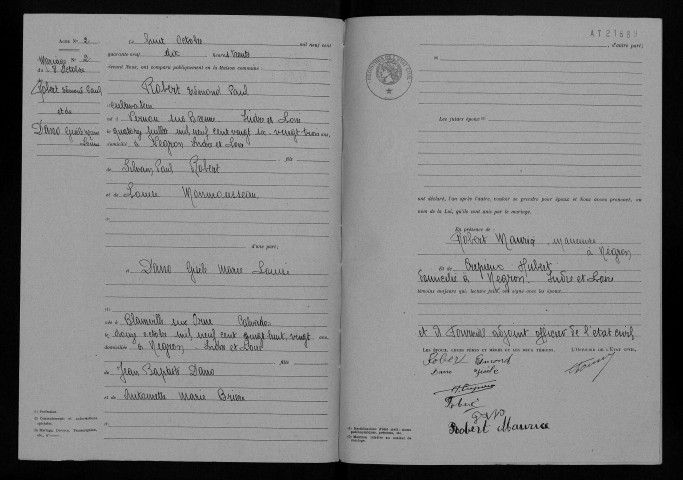 Acte N° 2
Mariage N° 2
du 8 Octobre
Robert Edmond Paul
et de
Dano Gisèle Marie
Louise
Le huit Octobre mil neuf cent
quarante neuf, dix heures trente
devant Nous, ont comparu publiquement en la Maison commune :
Robert Edmond Paul
cultivateur
né à Vernou sur Brenne Indre et Loire
le quatorze juillet mil neuf cent vingt six - vingt trois ans,
domicilié à Négron Indre et Loire
fils
de Silvain Paul Robert
et de Louise Monmousseau
(3)
d'une part;
et Dano Gisèle Marie Louise
(1)
née à Blainville sur Orne Calvados
le douze octobre mil neuf cent vingt huit, vingt ans,
domiciliée à Négron Indre et Loire
fille
de Jean Baptiste Dano
et de Antoinette Marie
(1) Profession.
AT21689
, d'autre part;
Les futurs époux
ont déclaré, l'un après l'autre, vouloir se prendre pour époux et Nous avons prononcé, au
nom de la Loi, qu'ils sont unis par le mariage.
En présence de :
Robert Maurice,
à Négron
Et de Hubert
domicilié à Négron Indre et Loire
témoins majeurs qui, lecture faite, ont signé avec les époux
et adjoint officier de l'état civil
Les époux, leurs pères et mères et les deux témoins, L'Officier de l'État civil,
Robert Edmond
Dano Gisèle
Robert
Dano
Robert Maurice